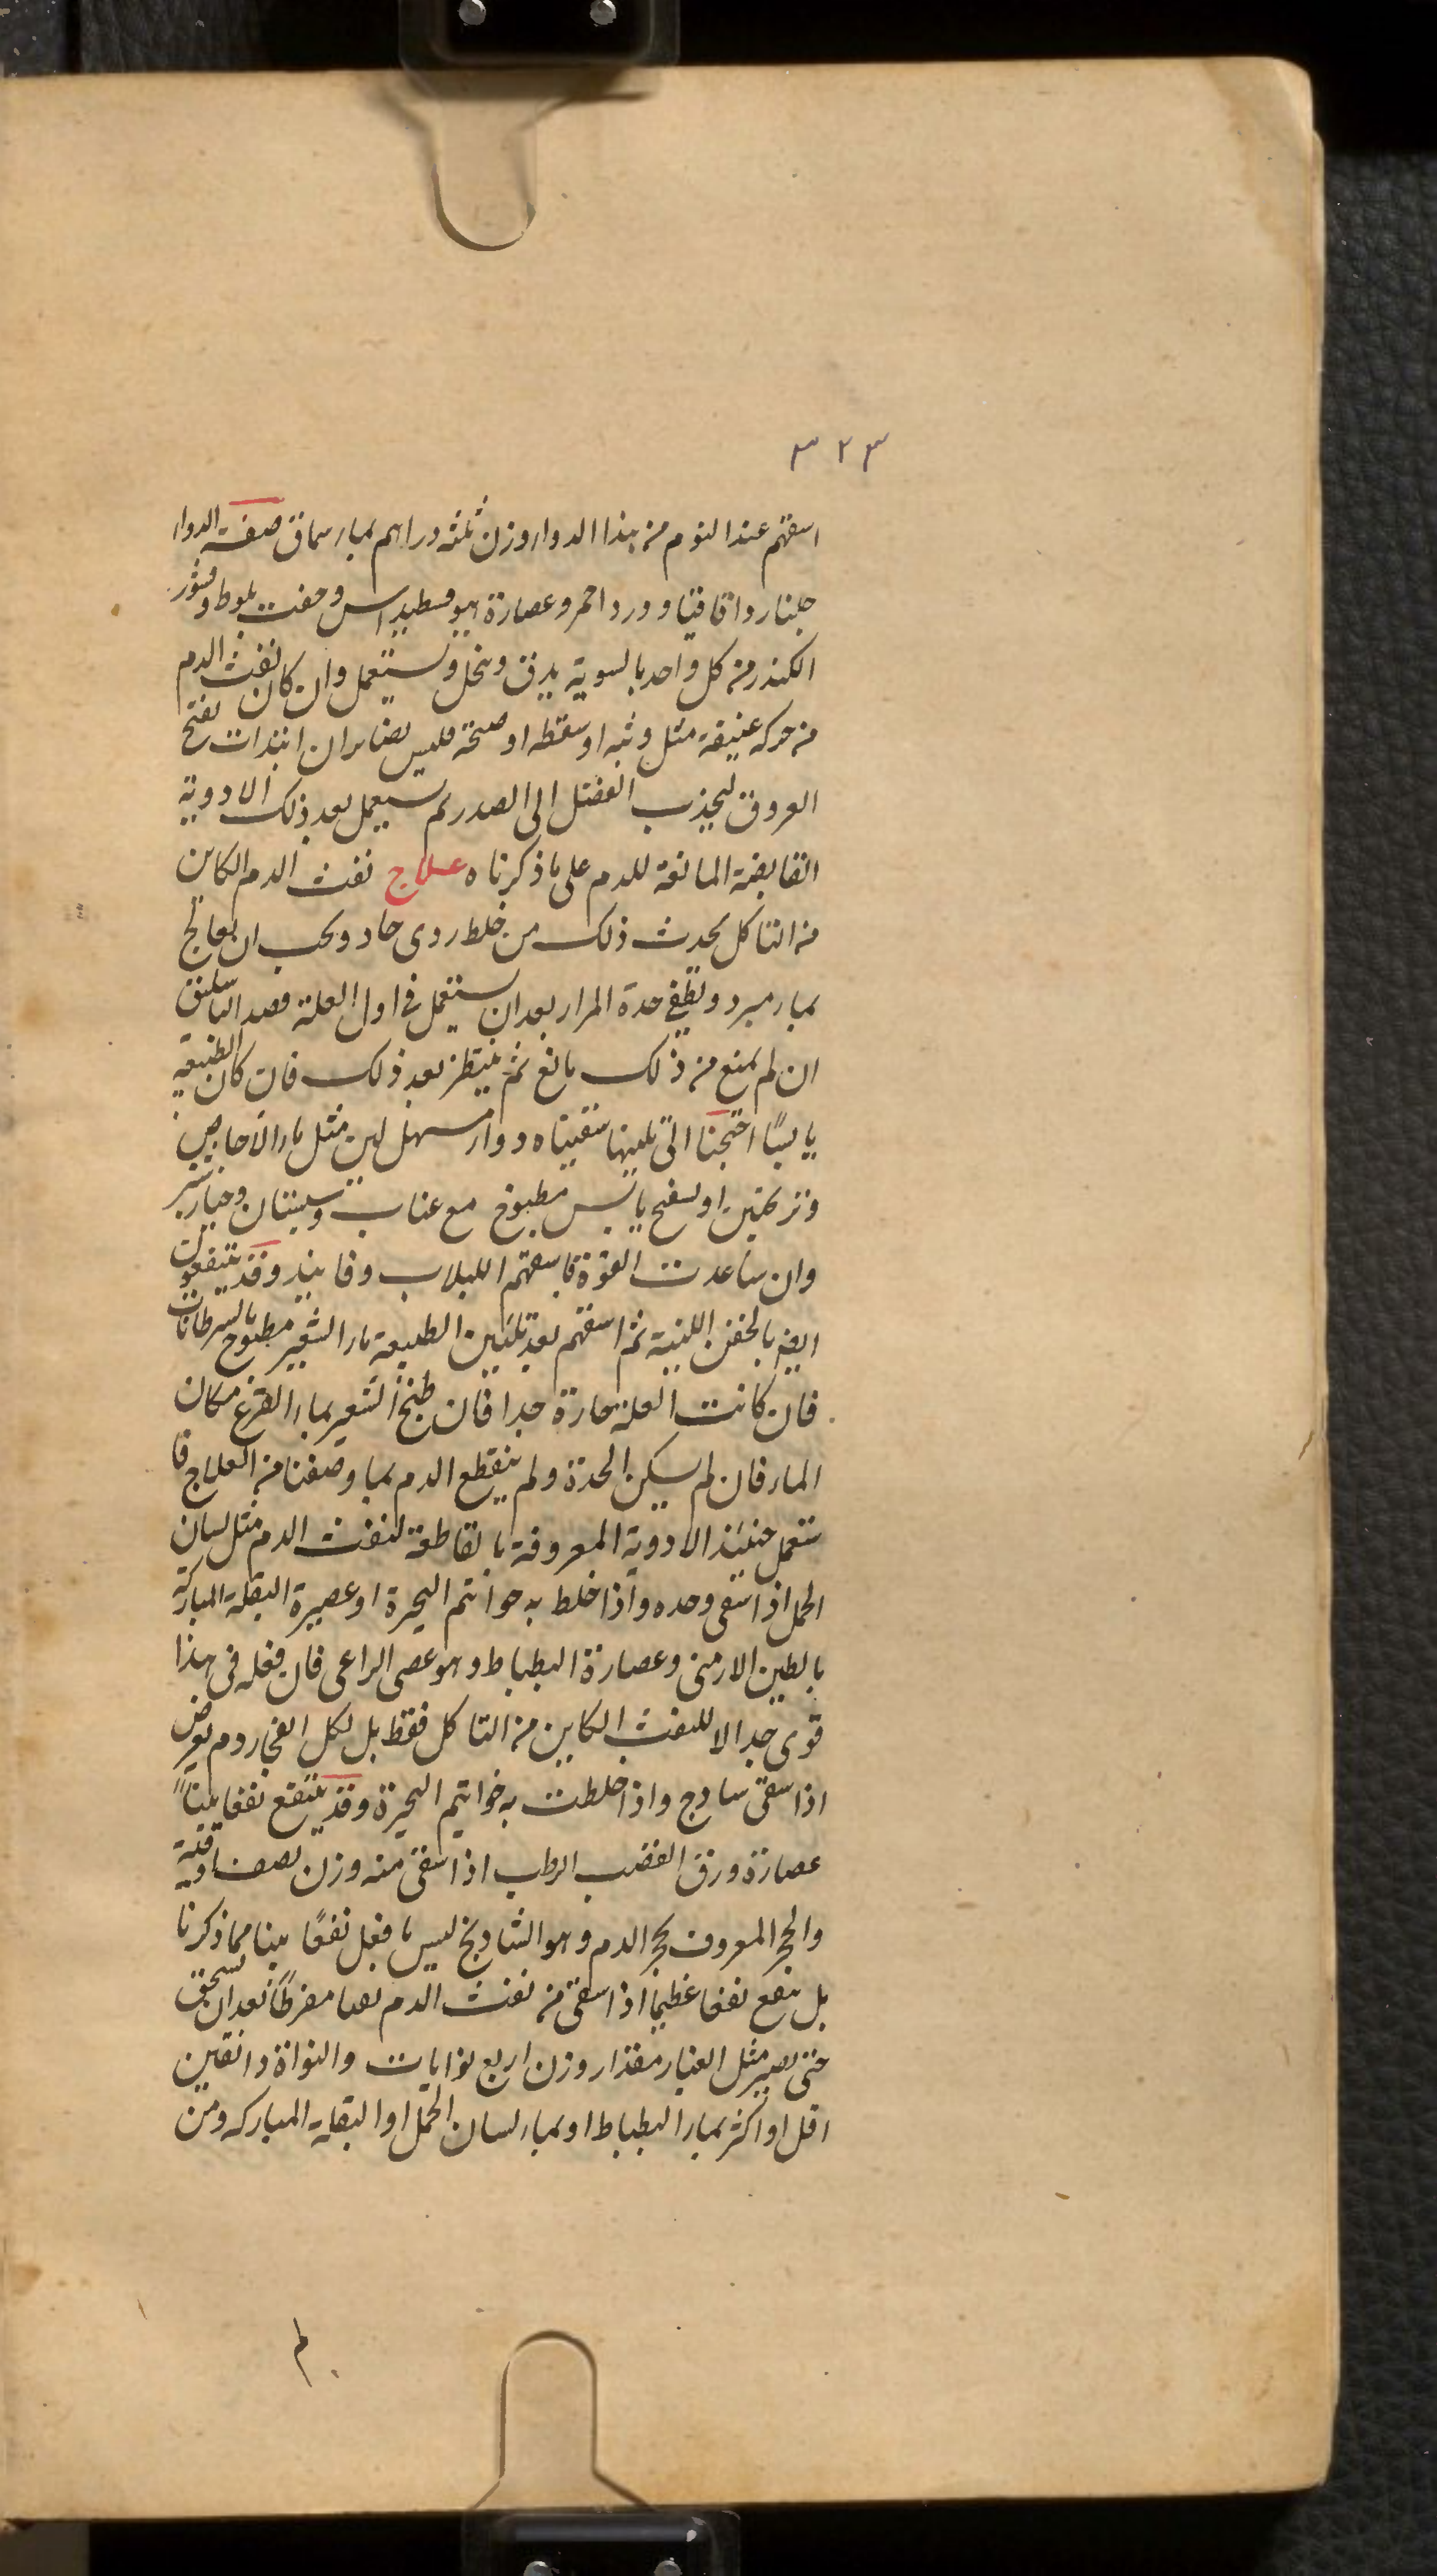 ٣٢٣
اسقهم عند النوم من هذا الدواء وزن ثلثه دراهم بماء سماق صفة الدواء
جلنار واقاقيا وورد احمر وعصارة هيوفسطيداس وجفت بلوط وقشور
الكندر من كل واحد بالسوية يدق وينخل ويستعمل وان كان نفث الدم
من حركه عنيفة مثل وثبه او سقطه او صيحة فليس بضاير ان ابتدات بفتح
العروق ليجذب الفضل الى الصدر ثم يستعمل بعد ذلك الادوية
القابضة المانعة للدم على ما ذكرناه علاج نفث الدم الكاين
من التاكل يحدث ذلك من خلط ردى حاد ويجب ان يعالج
بما يبرد ويطفي حدة المرار بعد ان يستعمل في اول العلة فصد الباسليق
ان لم يمنع من ذلك مانع ثم ينتظر بعد ذلك فان كان الطبيعة
يابسًا احتجنا الى تليينها سقيناه دواء مسهل لين مثل ماء الاجاص
وترنجبين او بنفسج يابس مطبوخ مع عناب وسبستان وخيارشنبر
وان ساعدت القوة فاسقهم اللبلاب وفانيد وقد ينتفعون
ايضا بالحقن اللينة ثم اسقهم بعد تليين الطبيعة ماء الشعير مطبوخ بالسرطانات
فان كانت العلة حارة جدا فان طبخ الشعير بماء القرع مكان
الماء فان لم يسكن الحدة ولم ينقطع الدم بما وصفنا من العلاج فا
ستعمل حينئذ الادوية المعروفة بالقاطعة لنفث الدم مثل لسان
الحمل اذا سقى وحده واذا خلط به خواتم البحيرة او عصيرة البقلة المباركة
بالطين الارمنى وعصارة البطباط وهو عصى الراعى فان فعله فى هذا
قوى جدا لا للنفث الكاين من التاكل فقط بل لكل انفجار دم يعرض
اذا سقى ساذج واذا خلطت به خواتيم البحيرة وقد ينتفع نفعا بينًا
عصارة ورق القضب الرطب اذا سقى منه وزن نصف اوقية
والحجر المعروف بحجر الدم وهو الشادنج ليس باقل نفعًا بينا مما ذكرنا
بل ينفع نفعا عظيما اذا سقى من نفث الدم نفثا مفرطًا بعد ان يسحق
حتى يصير مثل الغبار مقدار وزن اربع نوايات والنواة دانقين
اقل او اكثر بماء البطباط او بماء لسان الحمل او البقلة المباركه ومن